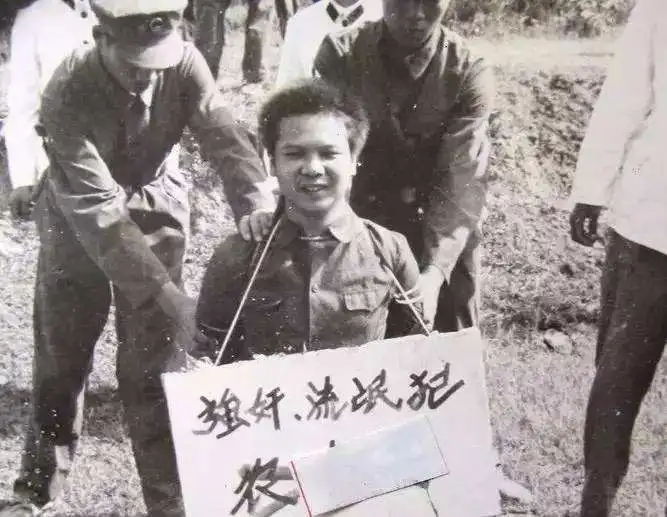 强奸、流氓犯
农